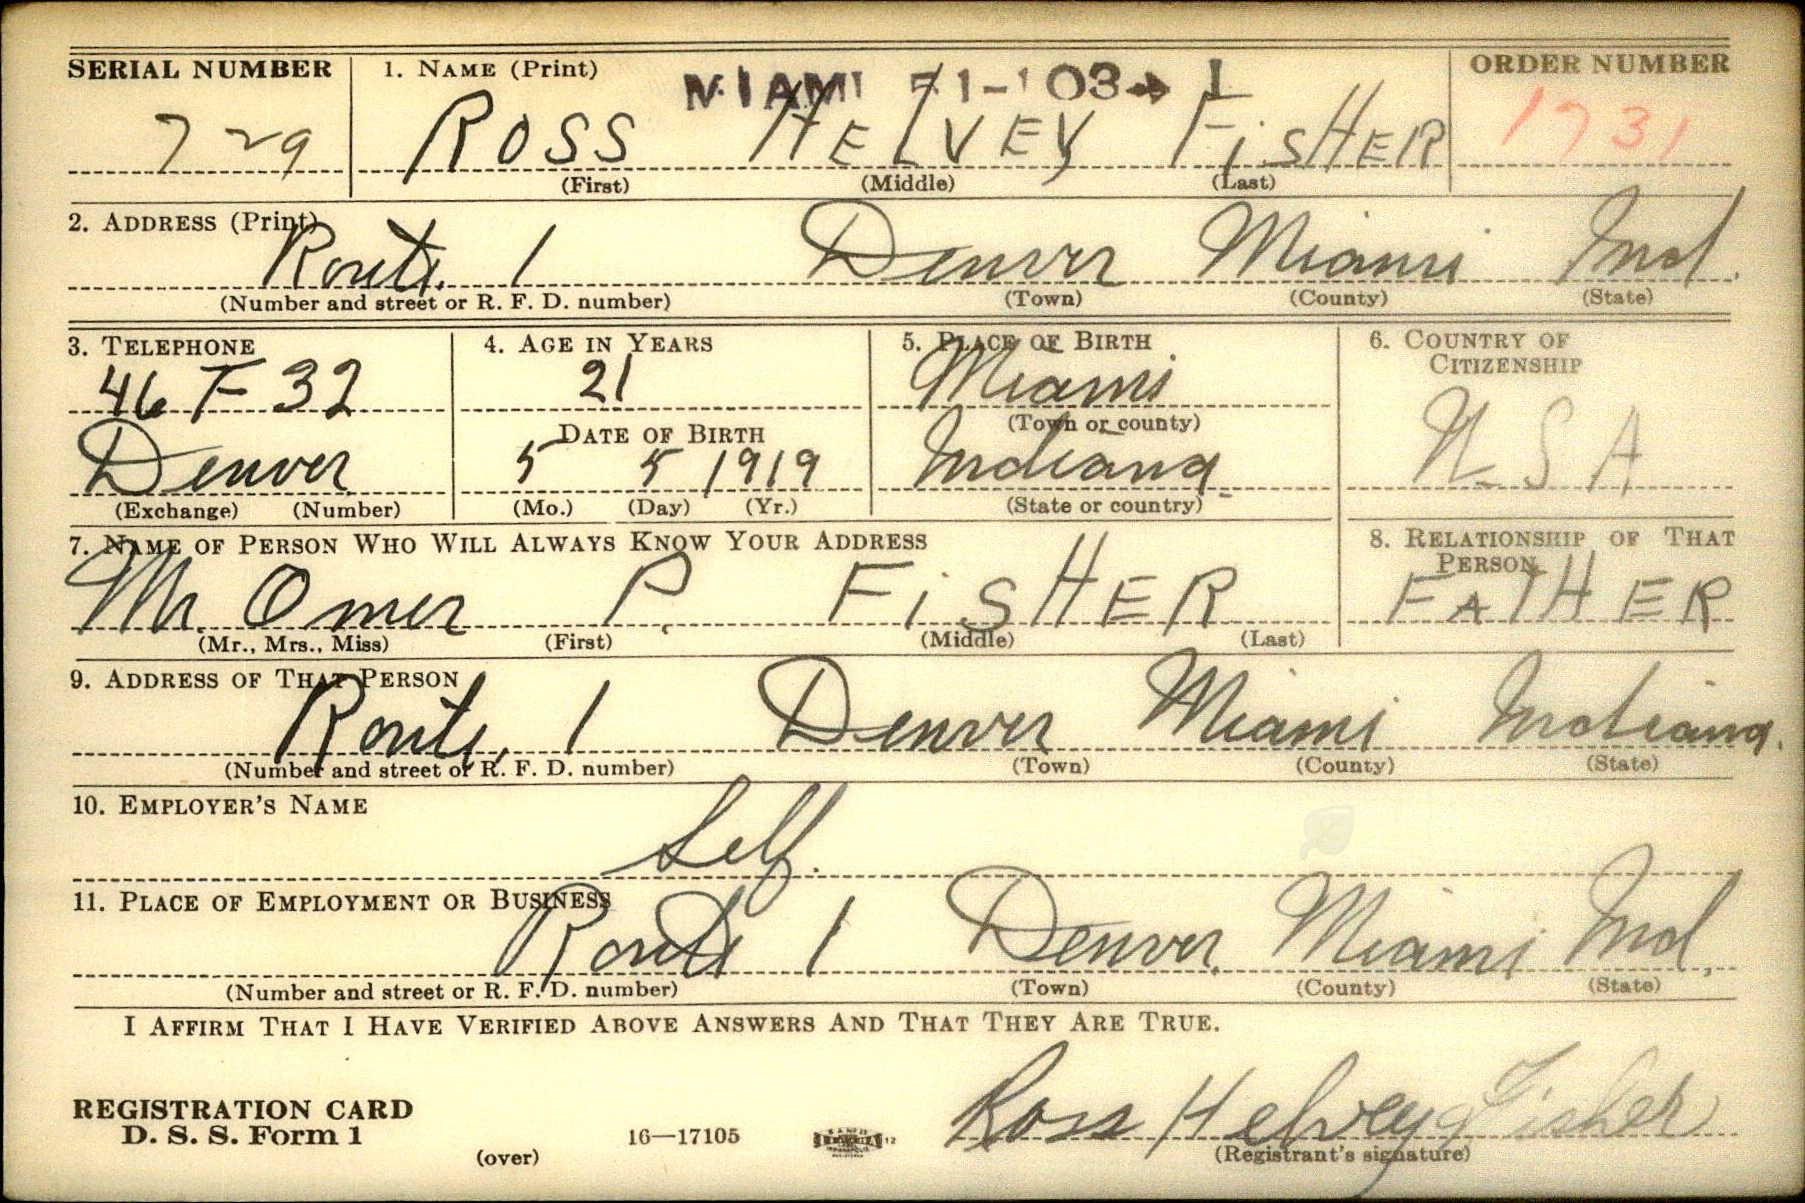 SERIAL NUMBER 1. NAME (Print) ORDER NUMBER
MIAMI 51-103→ 1
729 ROSS HELVEY FiSHER 1731
(First) (Middle) (Last)
2. ADDRESS (Print)
Route. 1 Denver Miami Ind.
(Number and street or R. F. D. number) (Town) (County) (State)
3. TELEPHONE 4. AGE IN YEARS 5. PLACE OF BIRTH 6. COUNTRY OF
CITIZENSHIP
46 F 32 21 Miami
(Town or county)
DATE OF BIRTH
Denver 5 5 1919 Indiana U S A
(Exchange) (Number) (Mo.) (Day) (Yr.) (State or country)
7. NAME OF PERSON WHO WILL ALWAYS KNOW YOUR ADDRESS 8. RELATIONSHIP OF THAT
PERSON
Mr. Omer P. FiSHER FATHER
(Mr., Mrs., Miss) (First) (Middle) (Last)
9. ADDRESS OF THAT PERSON
Route, 1 Denver Miami Indiana.
(Number and street or R. F. D. number) (Town) (County) (State)
10. EMPLOYER'S NAME
Self.
11. PLACE OF EMPLOYMENT OR BUSINESS
Route 1 Denver Miami Ind.
(Number and street or R. F. D. number) (Town) (County) (State)
I AFFIRM THAT I HAVE VERIFIED ABOVE ANSWERS AND THAT THEY ARE TRUE.
REGISTRATION CARD
D. S. S. Form 1 16—17105 Ross Helvey Fisher
(over) (Registrant's signature)